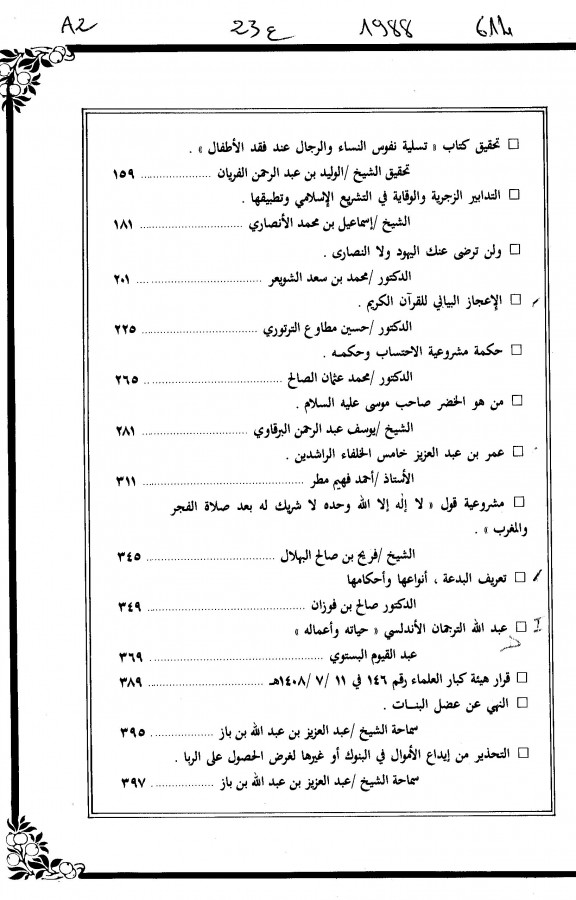 A2 23ع 1988 614
□ تحقيق كتاب « تسلية نفوس النساء والرجال عند فقد الأطفال » .
تحقيق الشيخ /الوليد بن عبد الرحمن الفريان ........................ ١٥٩
□ التدابير الزجرية والوقاية في التشريع الإسلامي وتطبيقها .
الشيخ /إسماعيل بن محمد الأنصاري ........................ ١٨١
□ ولن ترضى عنك اليهود ولا النصارى .
الدكتور /محمد بن سعد الشويعر ........................ ٢٠١
□ الإعجاز البياني للقرآن الكريم .
الدكتور /حسين مطاوع الترتوري ........................ ٢٢٥
□ حكمة مشروعية الاحتساب وحكمـه .
الدكتور /محمد عثمان الصالح ........................ ٢٦٥
□ من هو الخضر صاحب موسى عليه السلام .
الشيخ /يوسف عبد الرحمن البرقاوي ........................ ٢٨١
□ عمر بن عبد العزيز خامس الخلفاء الراشدين .
الأستاذ /أحمد فهيم مطر ........................ ٣١١
□ مشروعية قول « لا إله إلا الله وحده لا شريك له بعد صلاة الفجر
والمغرب » .
الشيخ /فريح بن صالح البهلال ........................ ٣٤٥
□ تعريف البدعة ، أنواعها وأحكامها
الدكتور صالح بن فوزان ........................ ٣٤٩
□ عبد الله الترجمان الأندلسي « حياته وأعماله »
عبد القيوم البستوي ........................ ٣٦٩
□ قرار هيئة كبار العلماء رقم ١٤٦ في ١١ /٧ /١٤٠٨هـ ............ ٣٨٩
□ النهي عن عضل البنـات .
سماحة الشيخ /عبد العزيز بن عبد الله بن باز .................. ٣٩٥
□ التحذير من إيداع الأموال في البنوك أو غيرها لغرض الحصول على الربا .
سماحة الشيخ /عبد العزيز بن عبد الله بن باز .................. ٣٩٧